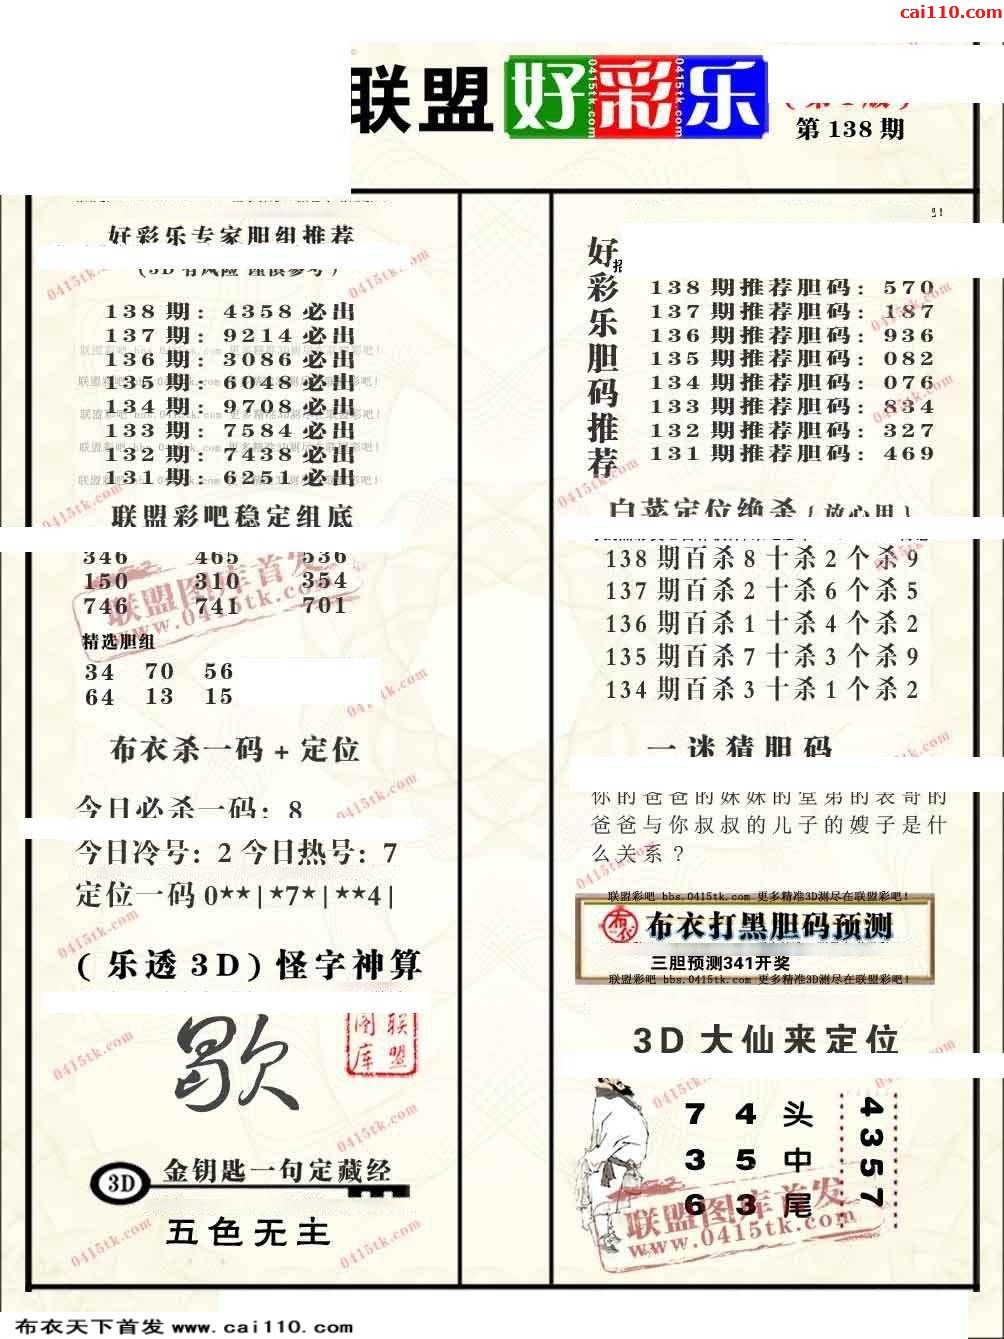 cai110.com
联盟 好彩乐
第 138 期
好彩乐专家胆组推荐
(3D 有风险 谨慎参考)
138 期: 4358 必出
137 期: 9214 必出
136 期: 3086 必出
135 期: 6048 必出
134 期: 9708 必出
133 期: 7584 必出
132 期: 7438 必出
131 期: 6251 必出
联盟彩吧稳定组底
346 465 536
150 310 354
746 741 701
精选胆组
34 70 56
64 13 15
布衣杀一码 + 定位
今日必杀一码: 8
今日冷号: 2 今日热号: 7
定位一码 0**|*7*|**4|
(乐透 3D) 怪字神算
歇
联盟
图库
3D 金钥匙一句定藏经
五色无主
好彩乐胆码推荐
138 期推荐胆码: 570
137 期推荐胆码: 187
136 期推荐胆码: 936
135 期推荐胆码: 082
134 期推荐胆码: 076
133 期推荐胆码: 834
132 期推荐胆码: 327
131 期推荐胆码: 469
白菜定位绝杀 { 放心用 }
138 期百杀 8 十杀 2 个杀 9
137 期百杀 2 十杀 6 个杀 5
136 期百杀 1 十杀 4 个杀 2
135 期百杀 7 十杀 3 个杀 9
134 期百杀 3 十杀 1 个杀 2
一迷猜胆码
你的爸爸的妹妹的堂弟的表哥的
爸爸与你叔叔的儿子的嫂子是什
么关系?
联盟彩吧 bbs.0415tk.com 更多精准3D测尽在联盟彩吧!
布衣 布衣打黑胆码预测
三胆预测341开奖
联盟彩吧 bbs.0415tk.com 更多精准3D测尽在联盟彩吧!
3D 大仙来定位
7 4 头
3 5 中
6 3 尾
4357
联盟图库首发
www.0415tk.com
布衣天下首发 www.cai110.com